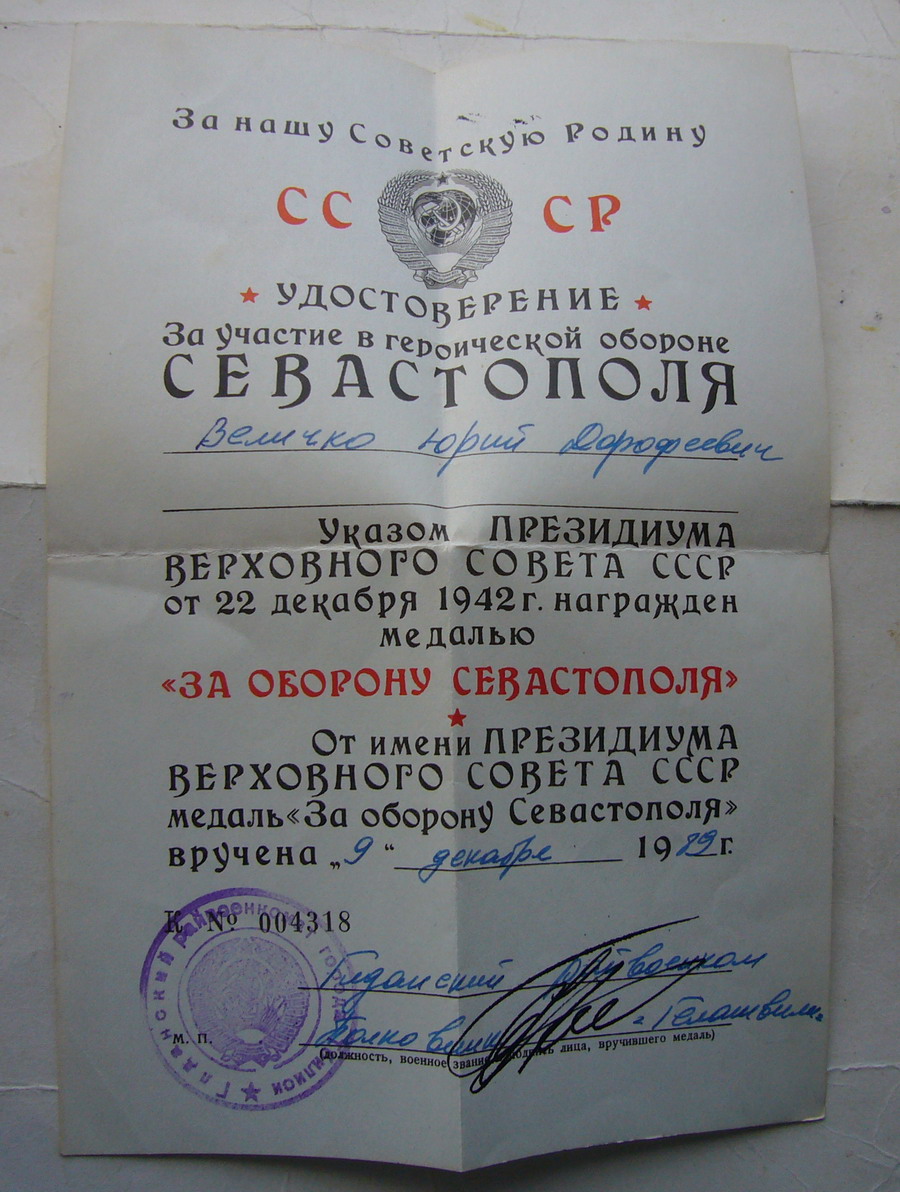 За нашу Советскую Родину
СССР
УДОСТОВЕРЕНИЕ
За участие в героической обороне
СЕВАСТОПОЛЯ
Величко Юрий Дорофеевич
Указом ПРЕЗИДИУМА
ВЕРХОВНОГО СОВЕТА СССР
от 22 декабря 1942 г. награжден
медалью
«ЗА ОБОРОНУ СЕВАСТОПОЛЯ»
От имени ПРЕЗИДИУМА
ВЕРХОВНОГО СОВЕТА СССР
медаль «За оборону Севастополя»
вручена „9“ декабря 1989 г.
К № 004318
Глданский райвоенком
Полковник Гелашвили
М. П.
(должность, военное звание и подпись лица, вручившего медаль)
Глданский райвоенкомат города Тбилиси